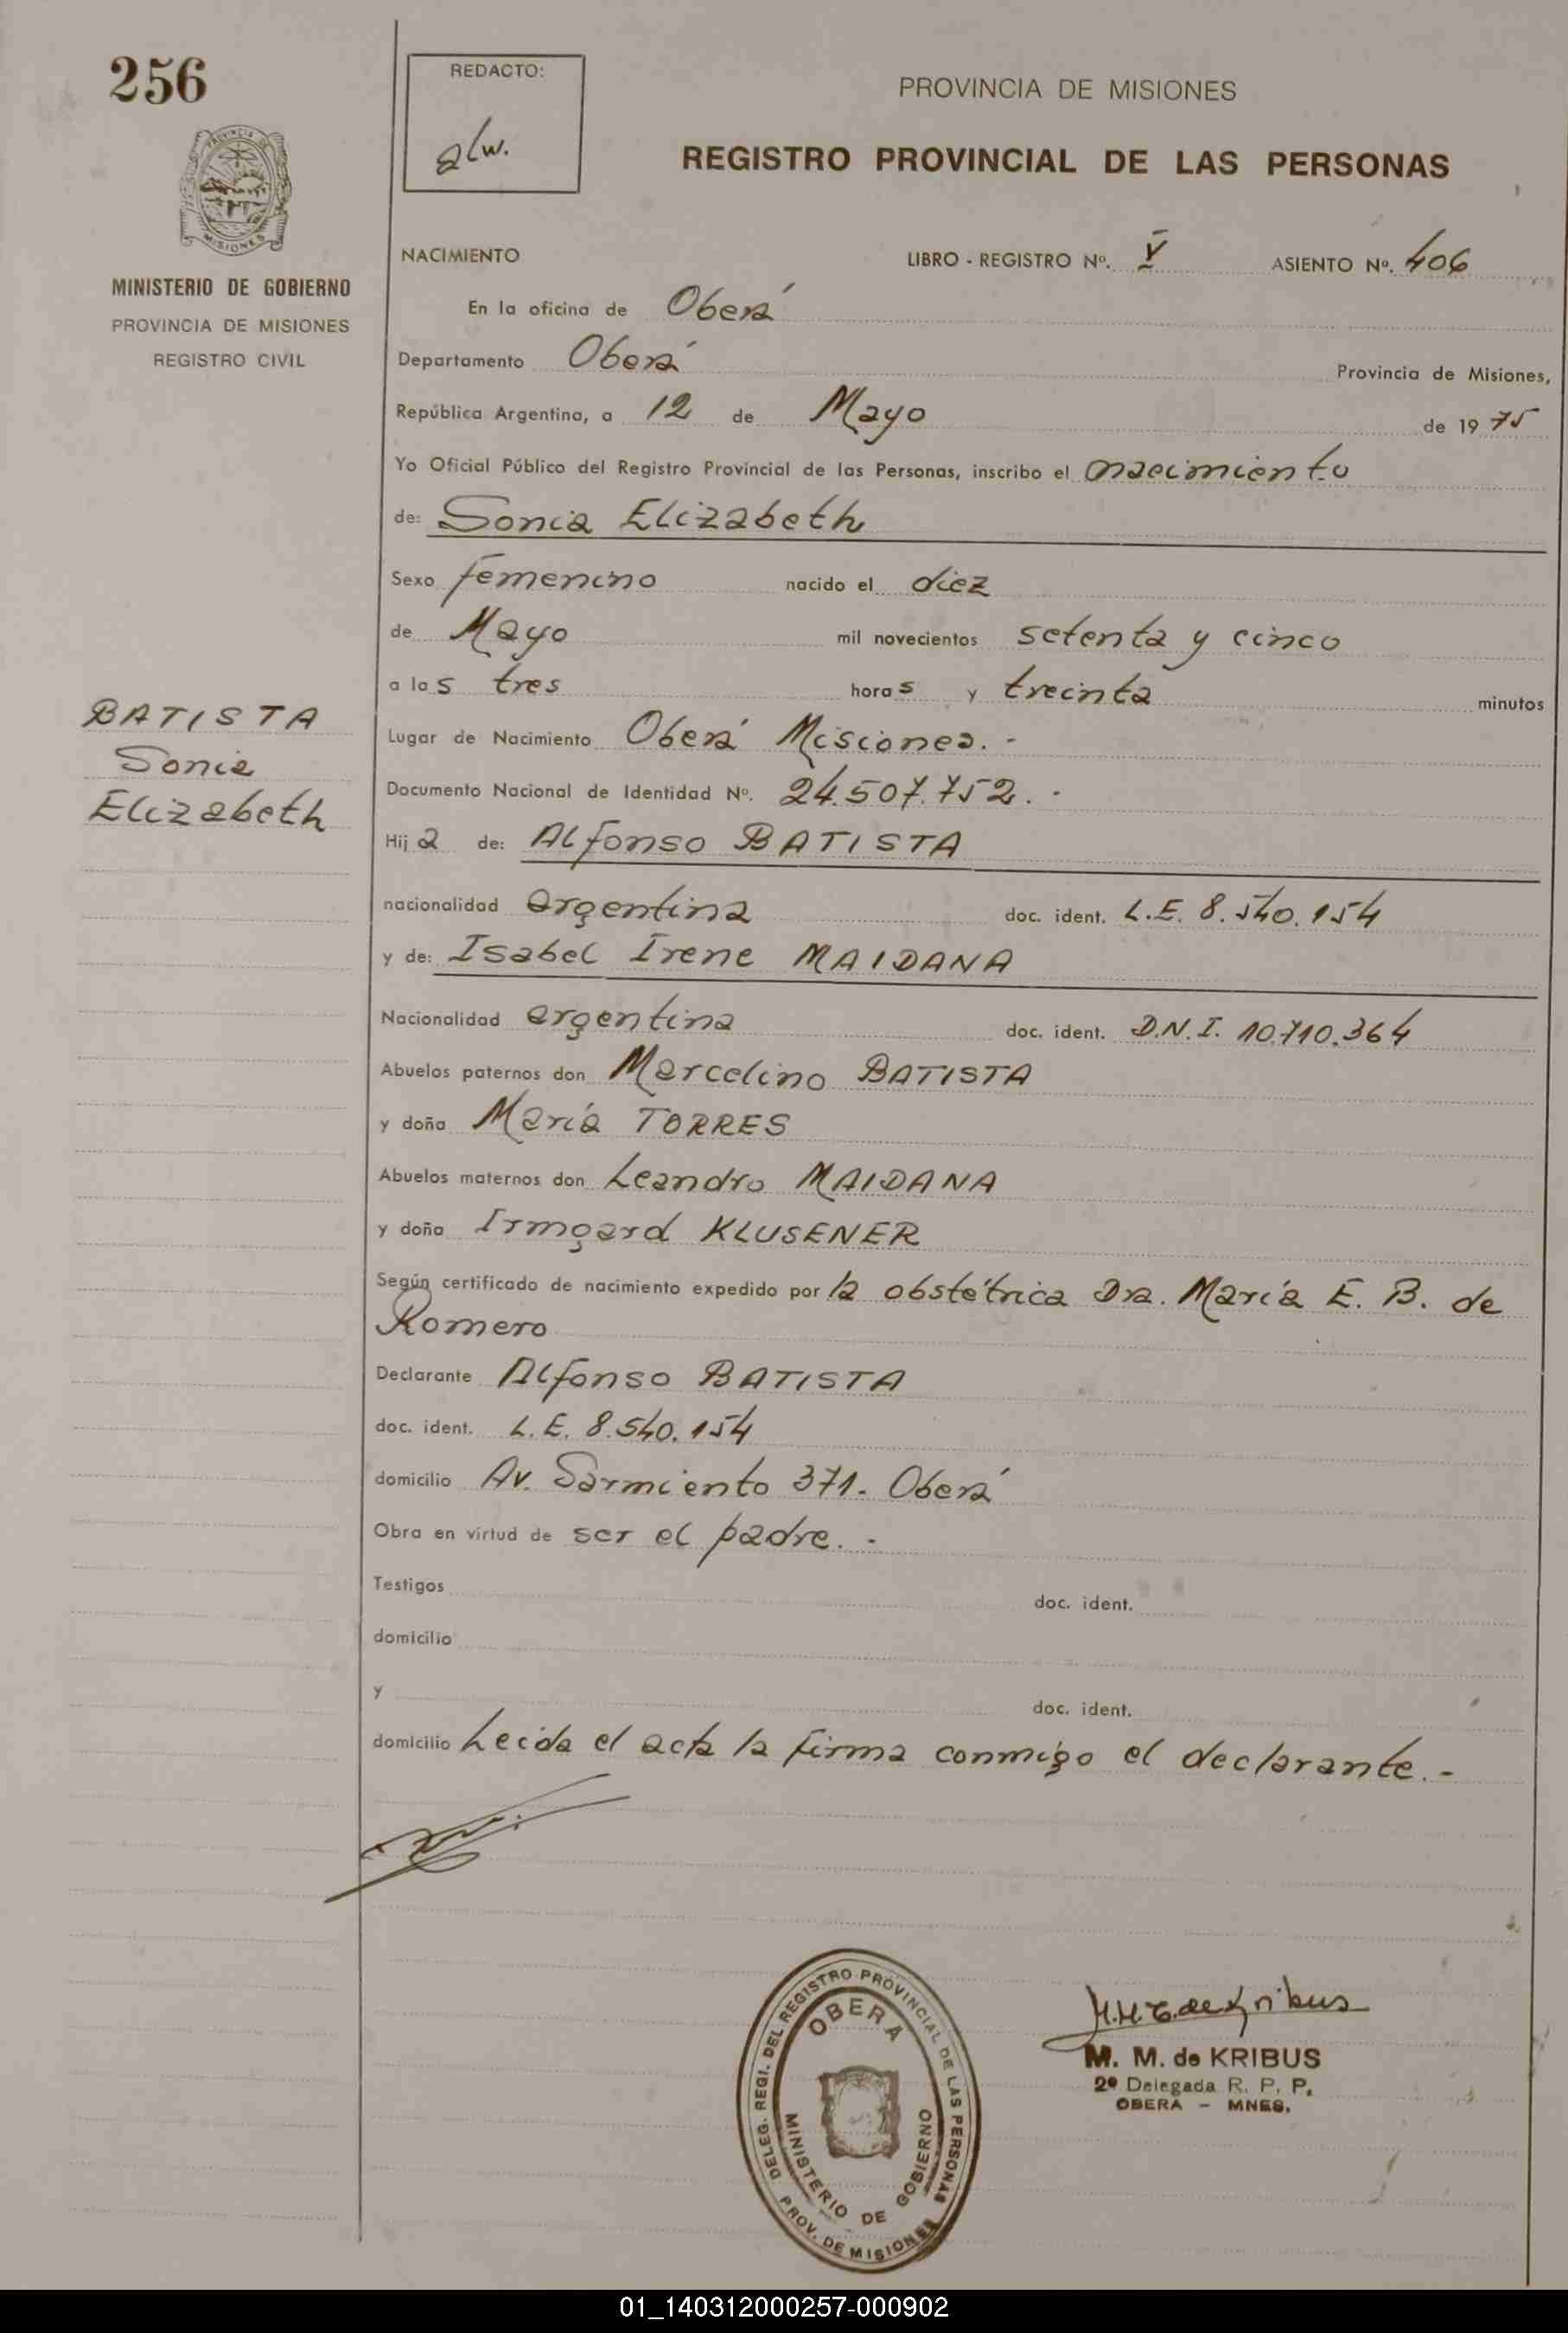 256
REDACTO:
alw.
PROVINCIA DE MISIONES
REGISTRO PROVINCIAL DE LAS PERSONAS
PROVINCIA DE
MISIONES
MINISTERIO DE GOBIERNO
PROVINCIA DE MISIONES
REGISTRO CIVIL
NACIMIENTO LIBRO - REGISTRO Nº. V ASIENTO Nº. 406
En la oficina de Oberá
Departamento Oberá Provincia de Misiones,
República Argentina, a 12 de Mayo de 1975
Yo Oficial Público del Registro Provincial de las Personas, inscribo el nacimiento
de: Sonia Elizabeth
Sexo femenino nacido el diez
de Mayo mil novecientos setenta y cinco
a las tres horas y treinta minutos
BATISTA
Sonia
Elizabeth
Lugar de Nacimiento Oberá Misiones. -
Documento Nacional de Identidad Nº. 24.507.752. -
Hija de: Alfonso BATISTA
nacionalidad argentina doc. ident. L.E. 8.540.154
y de: Isabel Irene MAIDANA
Nacionalidad argentina doc. ident. D.N.I. 10.710.364
Abuelos paternos don Marcelino BATISTA
y doña María TORRES
Abuelos maternos don Leandro MAIDANA
y doña Irmgard KLUSENER
Según certificado de nacimiento expedido por la obstétrica Dra. María E. B. de
Romero
Declarante Alfonso BATISTA
doc. ident. L.E. 8.540.154
domicilio Av. Sarmiento 371. Oberá
Obra en virtud de ser el padre. -
Testigos doc. ident.
domicilio
y doc. ident.
domicilio Leida el acta la firma conmigo el declarante. -
DELEG. REGI. DEL REGISTRO PROVINCIAL DE LAS PERSONAS
OBERA
MINISTERIO DE GOBIERNO
PROV. DE MISIONES
M.M.E. de Kribus
M. M. de KRIBUS
2º Delegada R. P. P.
OBERA - MNES.
01_140312000257-000902